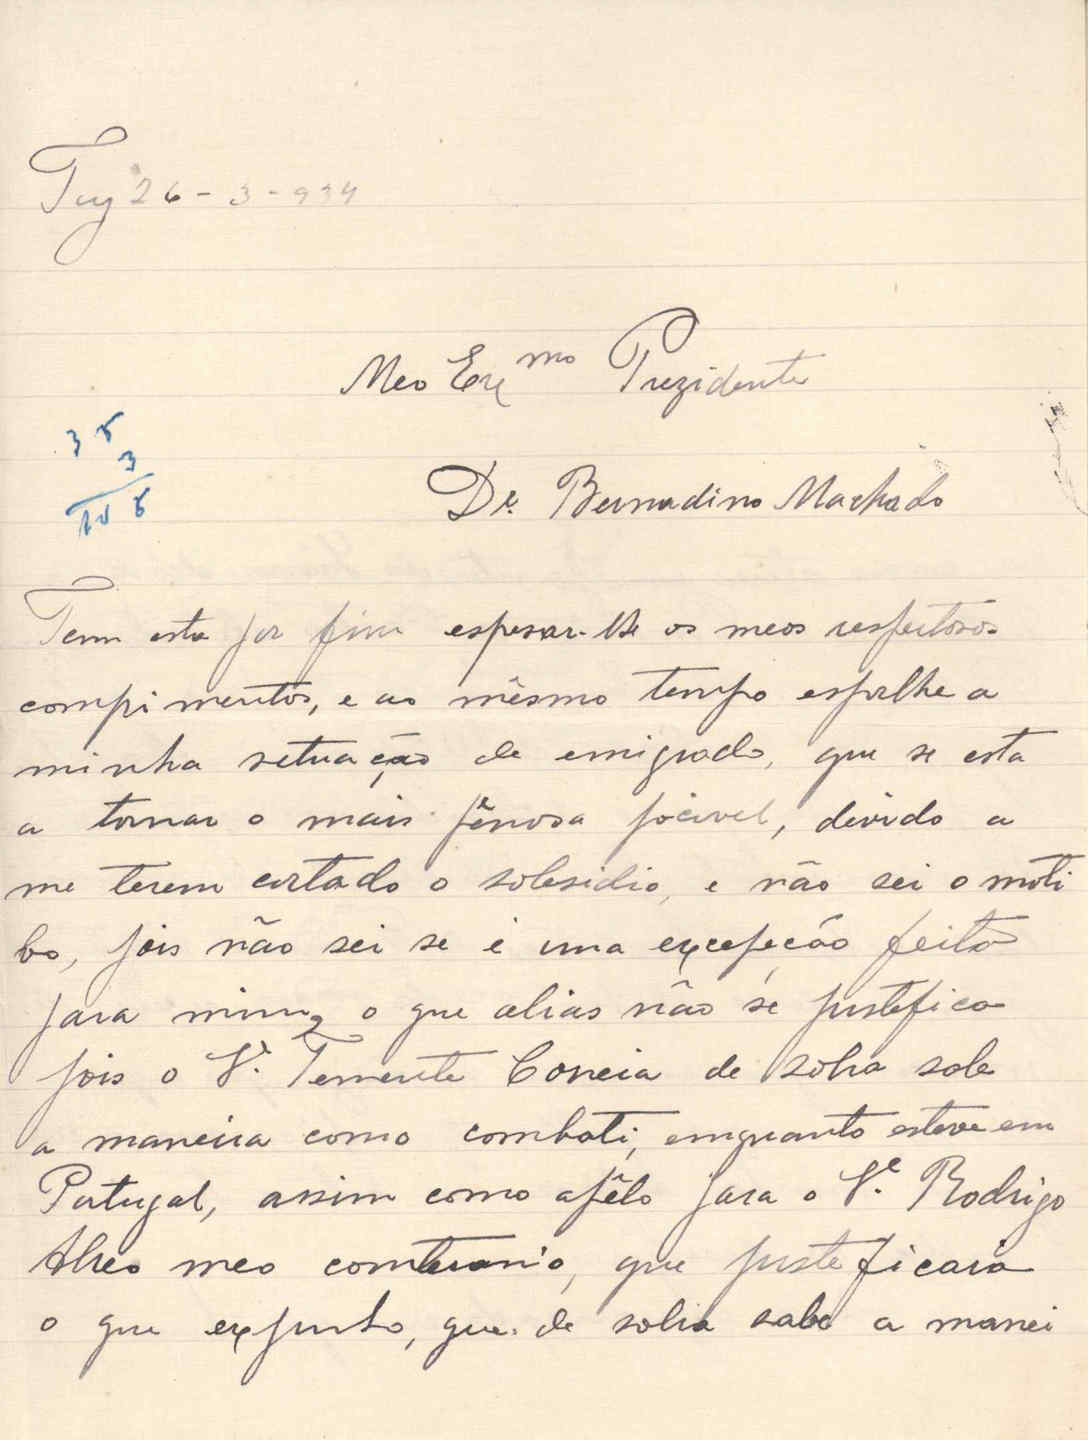 Tuy 26-3-934
Meo Exmo Prezidente
38
3
108
Dr. Bernadino Machado
Tem esta por fim espesar-lhe os meos respeitosos
comprimentos, e ao mêsmo tempo espolhe a
minha setuação de emigrado, que se esta
a tornar o mais pênosa pocivel, devido a
me terem cortado o solesidio, e não sei o moti
bo, pois não sei se é uma excepeção feita
para mim, o que alias não se justefica
pois o Sr. Temente Correia de sobra sabe
a maneira como combati, emquanto esteve em
Portugal, assim como apêlo para o Sr. Rodrigo
Abreo meo conterranio, que justeficaria
o que exponho, que de sobra sabe a manei